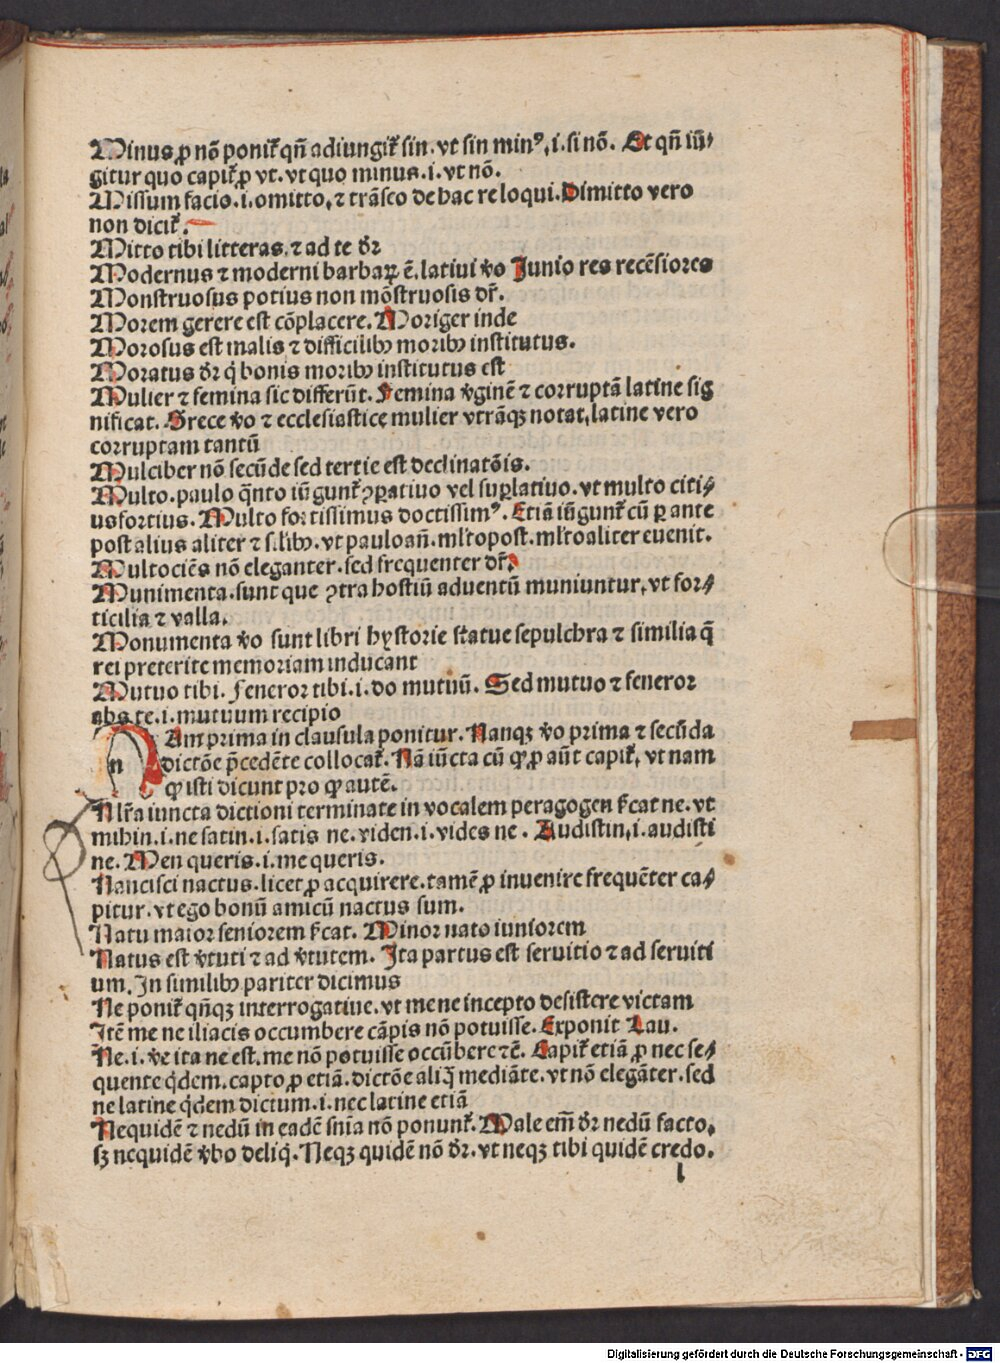 Minus ꝓ nō ponit᷑ qn̄ adiungit᷑ sin. vt sin minꝰ.i. si nō. Et qn̄ iū⸗
gitur quo capit᷑ ꝓ vt. vt quo minus .i. vt nō.
Missum facio .i. omitto, ⁊ trāseo de hac re loqui. Dimitto vero
non dicit᷑.
Mitto tibi litteras, ⁊ ad te dr̄
Modernus ⁊ moderni barbaꝝ ē. latiui v̄o Junio res recēsiores
Monstruosus potius non mōstruosis dr̄.
Morem gerere est cōplacere. Moriger inde
Morosus est malis ⁊ difficilibꝫ moribꝫ institutus.
Moratus dr̄ q̇ bonis moribꝫ institutus est
Mulier ⁊ femina sic differūt. Femina v̄ginē ⁊ corruptā latine sig
nificat. Grece v̄o ⁊ ecclesiastice mulier vtrāqꝫ notat, latine vero
corruptam tantū
Mulciber nō secūde sed tertie est declinatōis.
Multo. paulo q̄nto iū gunt᷑ ꝯꝑatiuo vel suꝑlatiuo. vt multo citi⸗
us fortius. Multo fortissimus doctissimꝰ. Etiā iūgunt᷑ cū ꝑ ante
post alius aliter ⁊ s̄līibꝫ. vt paulo an̄. ml̄to post. ml̄to aliter euenit.
Multociēs nō eleganter. sed frequenter dr̄.
Munimenta. sunt que ꝯtra hostiū aduentū muniuntur, vt for⸗
ticilia ⁊ valla.
Monumenta v̄o sunt libri hystorie statue sepulchra ⁊ similia q̄
rei preterite memoriam inducant
Mutuo tibi. feneror tibi .i. do mutuū. Sed mutuo ⁊ feneror
abs te .i. mutuum recipio
n Am prima in clausula ponitur. Nanqꝫ v̄o prima ⁊ secūda
dictōe p̄cedēte collocat᷑. Nā iūcta cū ꝙ ꝓ aūt capit᷑, vt nam
ꝙ isti dicunt pro ꝙ autē.
N lr̄a iuncta dictioni terminate in vocalem peragogen f̄cat ne. vt
mihin .i. ne satin .i. satis ne. viden .i. vides ne. Audistin .i. audisti
ne. Men queris .i. me queris.
Nancisci nactus. licet ꝓ acquirere. tamē ꝓ inuenire frequēter ca⸗
pitur. vt ego bonū amicū nactus sum.
Natu maior seniorem f̄cat. Minor nato iuniorem
Natus est v̄tuti ⁊ ad v̄tutem. Ita partus est seruitio ⁊ ad seruiti
um. In similibꝫ pariter dicimus
Ne ponit᷑ qn̄qꝫ interrogatiue. vt me ne incepto desistere victam
Itē me ne iliacis occumbere cāpis nō potuisse. Exponit Lau.
Ne .i. v̄e ita ne est. me nō potuisse occūbere ⁊c̄. Capit᷑ etiā ꝓ nec se⸗
quente q̇dem. capto ꝓ etiā. dictōe aliq̄ mediāte. vt nō elegāter. sed
ne latine q̇dem dictum .i. nec latine etiā
Nequidē ⁊ nedū in eadē sn̄ia nō ponunt᷑. Male em̄ dr̄ nedū facto,
sꝫ nequidē v̄bo deliq̇. Neqꝫ quidē nō dr̄. vt neqꝫ tibi quidē credo.
l
Digitalisierung gefördert durch die Deutsche Forschungsgemeinschaft - DFG